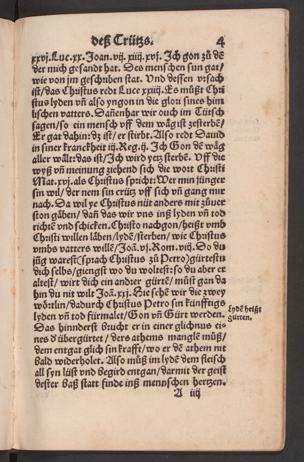 deß Crützs. 4
xxvj. Luc. xx. Joan. vij. xiiij. xvj. Ich gon zů dē
der mich gesandt hat. Des menschen sun gat/
wie von jm geschriben stat. Und dessen vrsach
ist/das Christus redt Luce xxiiij. Es můst Chri
stus lyden vñ also yngon in die glori sines him̄
lischen vatters. Dañenhar wir ouch im Tütsch
sagen/so ein mensch vff dem wäg ist zesterbē/
Er gat dahin: dz ist/er stirbt. Also redt Dauid
in siner kranckheit iij. Reg. ij. Ich Gon dē wäg
aller wält: das ist/Ich wird yetz sterbē. Uff die
wyß vñ meinung ziehend sich die wort Christi
Mat. xvj. als Christus spricht: Wer min jünger
sin wil/der nem sin crütz vff sich vñ gang mir
nach. Da wil ye Christus nüt anders mit zůuer
ston gäben/dañ das wir vns inß lyden vñ tod
richtē vnd schickē. Christo nachgon/heißt vmb
Christi willen läben/lydē/sterben/wie Christus
vmbs vatters willē/Joā. vj. Rom. viij. Do du
jüg warest (sprach Christus zů Petro) gürtestu
dich selbs/giengst wo du woltest: so du aber er
altest/wirt dich ein andrer gürtē/můst gan da
hin du nit wilt Joā. xxj. Hie sehē wir die zwey
wörtlin/dadurch Christus Petro sin künfftigs
lyden vñ tod fürmalet/Gon vñ Gürt werden.
Das hinnderst Brucht er in einer glichnus ei-
nes d übergürtet/ders athems manglē můß/
dem entgat glich sin krafft/wo er dē athem nit
bald widerholet. Also můß im lydē dem fleisch
all syn lüst vnd Begird entgan/darmit der geist
dester Baß statt finde inß menschen hertzen.
Lydē heißt
gürten.
A iiij